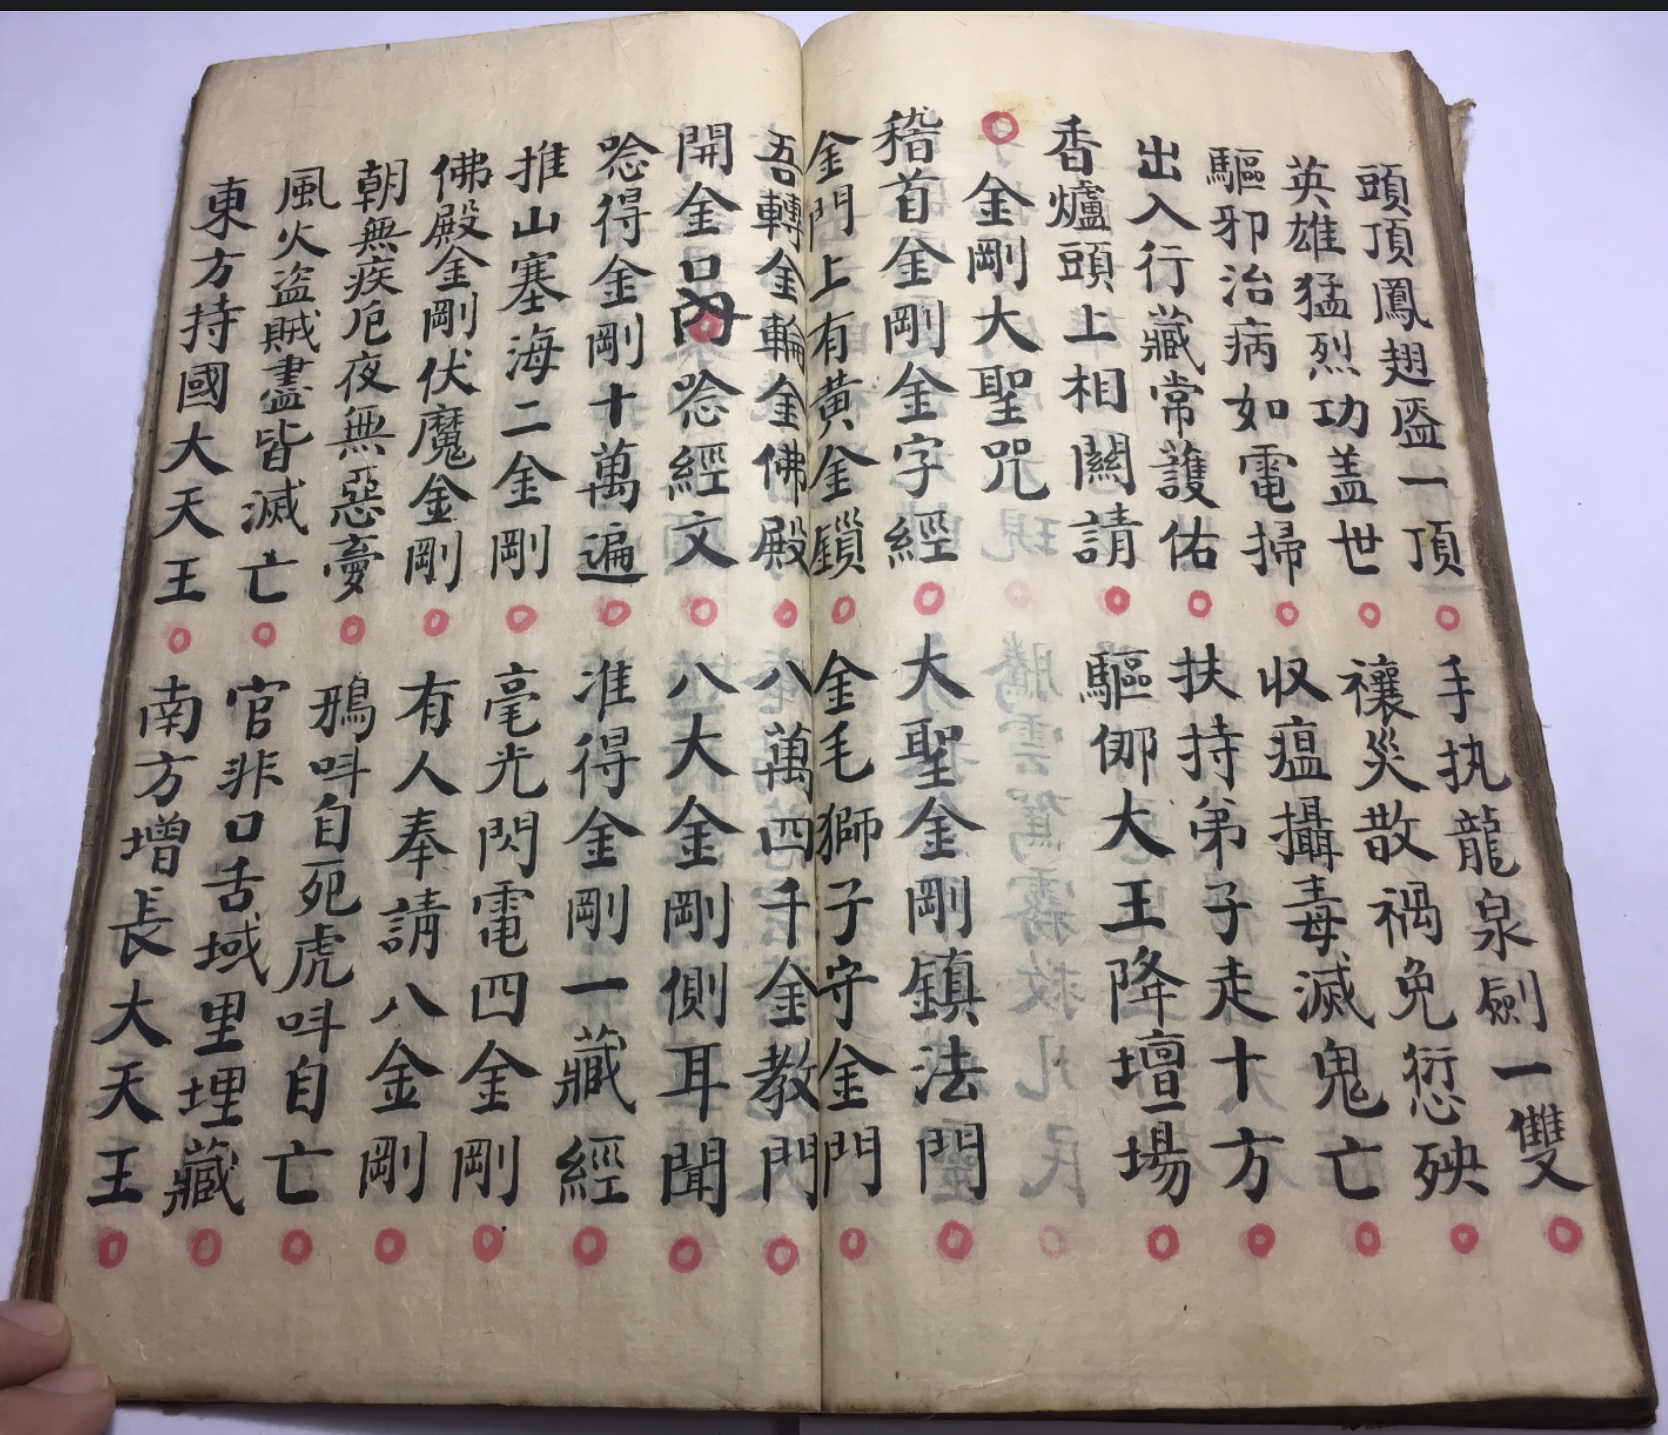 頭頂鳳翅盔一頂 手执龍泉劍一雙
英雄猛烈功盖世 禳災散禍免愆殃
驅邪治病如電掃 収瘟攝毒滅鬼亡
出入行藏常護佑 扶持弟子走十方
香爐頭上相關請 驅邪大王降壇場
金剛大聖咒
稽首金剛金字經 大聖金剛鎮法門
金門上有黃金鎖 金毛獅子守金門
吾轉金輪金佛殿 八萬四千金教門
開金口唸經文 八大金剛側耳聞
唸得金剛十萬遍 准得金剛一藏經
推山塞海二金剛 毫光閃電四金剛
佛殿金剛伏魔金剛 有人奉請八金剛
朝無疾厄夜無惡夢 鴉呌自死虎呌自亡
風火盜賊盡皆滅亡 官非口舌域里埋藏
東方持國大天王 南方增長大天王